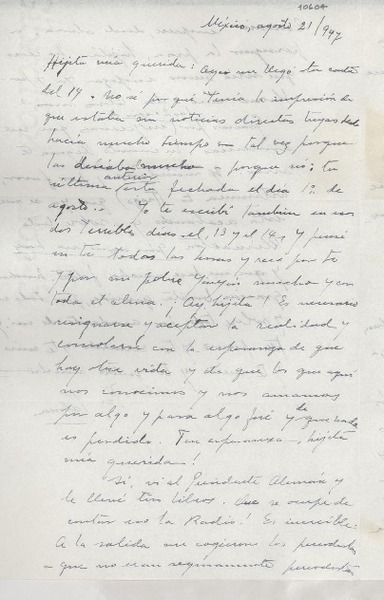 10604
México, agosto 21/947
Hijita mía querida: Ayer me llegó tu carta
del 14. No sé por qué tenía la impresión de
que estaba sin noticias directas tuyas desde
hacía mucho tiempo - tal vez porque
las deseaba mucho - porque no; tu
última anterior está fechada el día 1º de
agosto. - Yo te escribí también en esos
dos terribles días, el 13 y el 14, y pensé
en ti todas las horas y recé por ti
y por mi pobre Yinyin mucho y con
toda el alma. ¡Ay, hijita! Es necesario
resignarse y aceptar la realidad y
consolarse con la esperanza de que
hay otra vida y de que los que aquí
nos conocimos y nos amamos
por algo y para algo fué y de que nada
es perdido. Ten esperanza, hijita
mía querida!
Sí, vi al Presidente Alemán y
le llevé tus libros. Que se ocupe de
contar eso la Radio! Es increíble.
A la salida me cogieron los periodistas
- que no eran seguramente periodistas